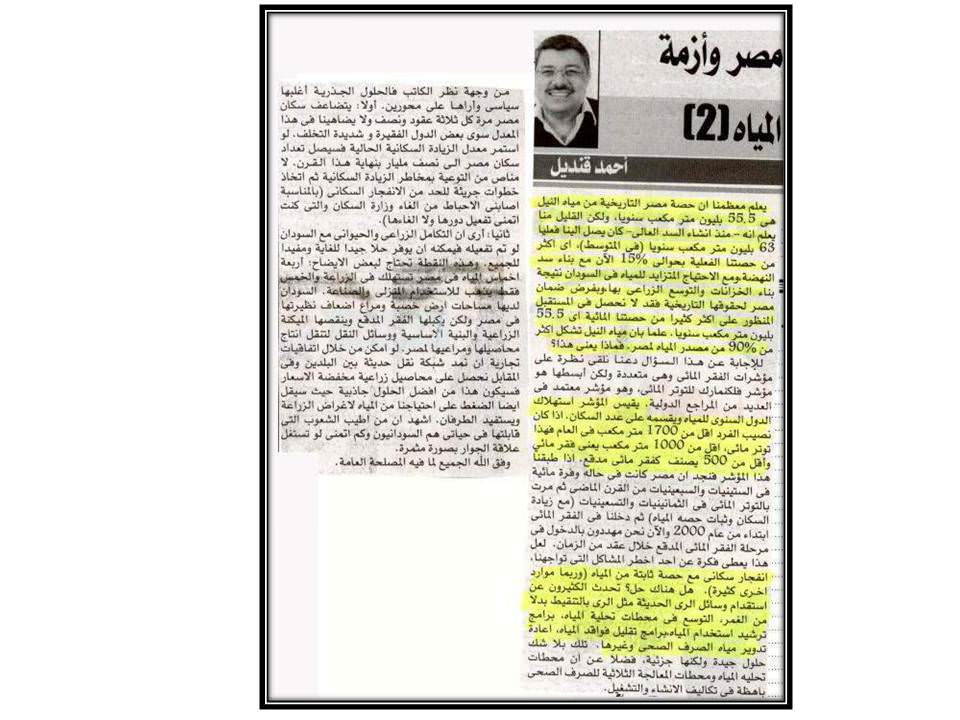 مصر وأزمة
المياه (2)
أحمد قنديل
يعلم معظمنا ان حصة مصر التاريخية من مياه النيل
هى 55.5 بليون متر مكعب سنويا، ولكن القليل منا
يعلم انه -منذ انشاء السد العالى- كان يصل الينا فعليا
63 بليون متر مكعب سنويا (فى المتوسط)، اى اكثر
من حصتنا الفعلية بحوالى 15% الآن مع بناء سد
النهضة ومع الاحتياج المتزايد للمياه فى السودان نتيجة
بناء الخزانات والتوسع الزراعى بها وبفرض ضمان
مصر لحقوقها التاريخية فقد لا نحصل فى المستقبل
المنظور على اكثر كثيرا من حصتنا المائية اى 55.5
بليون متر مكعب سنويا. علما بان مياه النيل تشكل اكثر
من 90% من مصدر المياه لمصر. فماذا يعنى هذا؟
للإجابة عن هذا السؤال دعنا نلقى نظرة على
مؤشرات الفقر المائى وهى متعددة ولكن أبسطها هو
مؤشر فلكنمارك للتوتر المائى، وهو مؤشر معتمد فى
العديد من المراجع الدولية. يقيس المؤشر استهلاك
الدول السنوى للمياه ويقسمه على عدد السكان. اذا كان
نصيب الفرد اقل من 1700 متر مكعب فى العام فهذا
توتر مائى، اقل من 1000 متر مكعب يعنى فقر مائى
وأقل من 500 يصنف كفقر مائى مدقع. اذا طبقنا
هذا المؤشر فنجد ان مصر كانت فى حالة وفرة مائية
فى الستينيات والسبعينيات من القرن الماضى ثم مرت
بالتوتر المائى فى الثمانينيات والتسعينيات (مع زيادة
السكان وثبات حصه المياه) ثم دخلنا فى الفقر المائى
ابتداء من عام 2000 والآن نحن مهددون بالدخول فى
مرحلة الفقر المائى المدقع خلال عقد من الزمان. لعل
هذا يعطى فكرة عن احد اخطر المشاكل التى تواجهنا،
انفجار سكانى مع حصة ثابتة من المياه (وربما موارد
اخرى كثيرة). هل هناك حل؟ تحدث الكثيرون عن
استقدام وسائل الرى الحديثة مثل الرى بالتنقيط بدلا
من الغمر، التوسع فى محطات تحلية المياه، برامج
ترشيد استخدام المياه،برامج تقليل فواقد المياه، اعادة
تدوير مياه الصرف الصحى وغيرها. تلك بلا شك
حلول جيدة ولكنها جزئية، فضلا عن أن محطات
تحليه المياه ومحطات المعالجة الثلاثية للصرف الصحى
باهظة فى تكاليف الانشاء والتشغيل.
من وجهة نظر الكاتب فالحلول الجذرية أغلبها
سياسى وأراها على محورين. أولا: يتضاعف سكان
مصر مرة كل ثلاثة عقود ونصف ولا يضاهينا فى هذا
المعدل سوى بعض الدول الفقيرة و شديدة التخلف. لو
استمر معدل الزيادة السكانية الحالية فسيصل تعداد
سكان مصر الى نصف مليار بنهاية هذا القرن. لا
مناص من التوعية بمخاطر الزيادة السكانية ثم اتخاذ
خطوات جريئة للحد من الانفجار السكانى (بالمناسبة
اصابنى الاحباط من الغاء وزارة السكان والتى كنت
اتمنى تفعيل دورها ولا الغاءها).
ثانيا: أرى ان التكامل الزراعى والحيوانى مع السودان
لو تم تفعيله فيمكنه ان يوفر حلا جيدا للغاية ومفيدا
للجميع وهذه النقطة تحتاج لبعض الايضاح: أربعة
اخماس المياه فى مصر تستهلك فى الزراعة والخمس
فقط يذهب للاستخدام المنزلى والصناعة. السودان
لديها مساحات ارض خصبة ومراع اضعاف نظيرتها
فى مصر ولكن يكبلها الفقر المدقع وينقصها الميكنة
الزراعية والبنية الاساسية ووسائل النقل لتنقل انتاج
محاصيلها ومراعيها لمصر. لو امكن من خلال اتفاقيات
تجارية ان نمد شبكة نقل حديثة بين البلدين وفى
المقابل نحصل على محاصيل زراعية مخفضة الاسعار
فسيكون هذا من افضل الحلول جاذبية حيث سيقل
ايضا الضغط على احتياجنا من المياه لاغراض الزراعة
ويستفيد الطرفان. اشهد ان من اطيب الشعوب التى
قابلتها فى حياتى هم السودانيون وكم اتمنى لو تستغل
علاقة الجوار بصورة مثمرة.
وفق الله الجميع لما فيه المصلحة العامة.